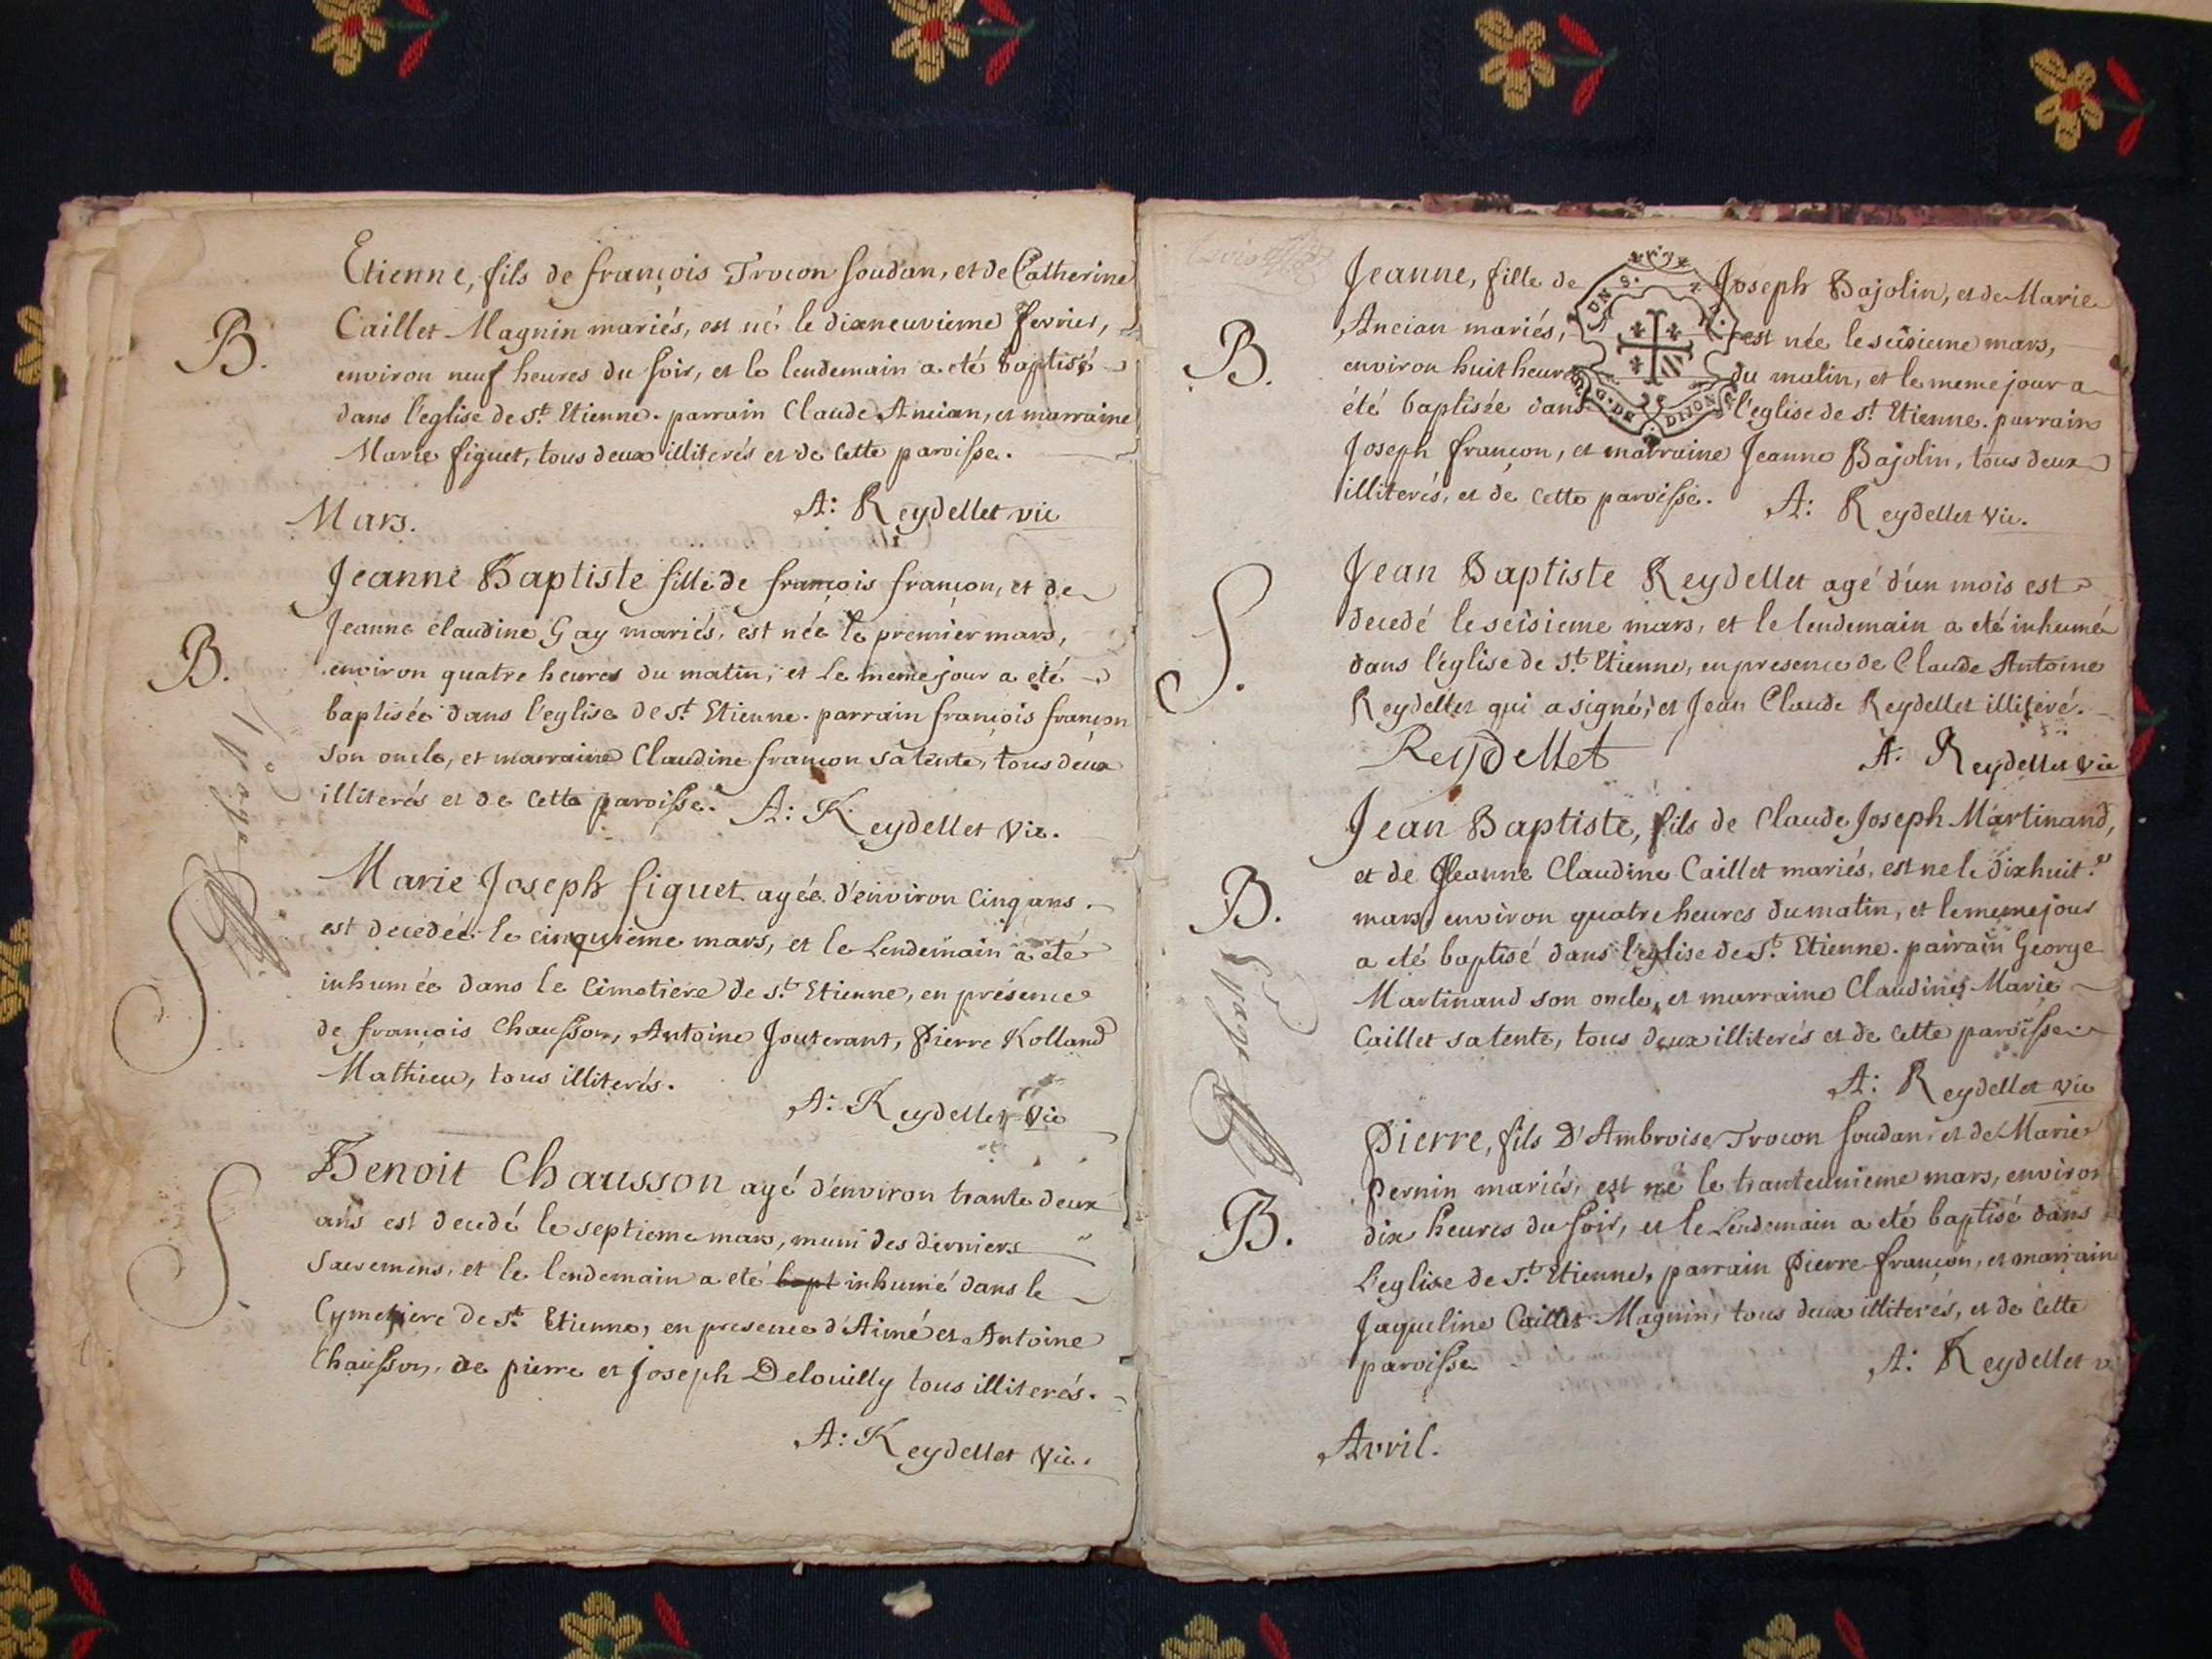 Etienne, fils de françois Trocon Soudan, et de Catherine
B. Caillet Magnin mariés, est né le dixneuvieme fevrier,
environ neuf heures du soir, et le lendemain a eté baptisé
dans l'eglise de st. Etienne. parrain Claude Ancian, et marraine
Marie figuet, tous deux illiterés et de cette paroisse.
A: Reydellet vic
Mars.
Jeanne Baptiste fille de françois françon, et de
Jeanne claudine Gay mariés, est née le premier mars,
B. environ quatre heures du matin, et le meme jour a eté
baptisée dans l'eglise de st. Etienne. parrain françois françon
son oncle, et marraine Claudine françon sa tente, tous deux
illiterés et de cette paroisse. A: Reydellet vic.
Marie Joseph figuet agée d'environ cinq ans
S est decedée le cinquieme mars, et le Lendemain a eté
inhumée dans le cimetiere de st. Etienne, en présence
de françois Chausson, Antoine Jouterant, Pierre Rolland
Mathieu, tous illiterés.
A: Reydellet vic
Benoit Chausson agé d'environ trante deux
ans est decedé le septieme mars, muni des derniers
S. sacremens, et le lendemain a eté bapt inhumé dans le
Cymetiere de st. Etienne, en presence d'Aimé et Antoine
Chausson, de pierre et Joseph Delouilly tous illiterés.
A: Reydellet vic.
Jeanne, fille de Joseph Bajolin, et de Marie
Ancian mariés, est née le seisieme mars,
B. environ huit heures du matin, et le meme jour a
été baptisée dans l'eglise de st. Etienne. parrain
Joseph françon, et marraine Jeanne Bajolin, tous deux
illiterés, et de cette paroisse. A: Reydellet vic.
G. DE DIJON
Jean Baptiste Reydellet agé d'un mois est
decedé le seisieme mars, et le lendemain a eté inhumé
S. dans l'eglise de st. Etienne, en presence de Claude Antoine
Reydellet qui a signé, et Jean Claude Reydellet illiteré.
Reydellet A: Reydellet vic
Jean Baptiste, fils de Claude Joseph Martinand,
et de Jeanne Claudine Caillet mariés, est ne le dixhuit.e
B. mars, environ quatre heures du matin, et le meme jour
a eté baptisé dans l'eglise de st. Etienne. pairain George
Martinand son oncle, et marraine Claudine Marie
Caillet sa tente, tous deux illiterés et de cette paroisse.
A: Reydellet vic
Pierre, fils D'Ambroise Trocon Soudan, et de Marie
Pernin mariés, est né le tranteunieme mars, environ
B. dix heures du soir, et le Lendemain a eté baptisé dans
L'eglise de st. Etienne, parrain Pierre françon, et marrain
Jaqueline Caillet Magnin, tous deux illiterés, et de cette
paroisse A: Reydellet v
Avril.